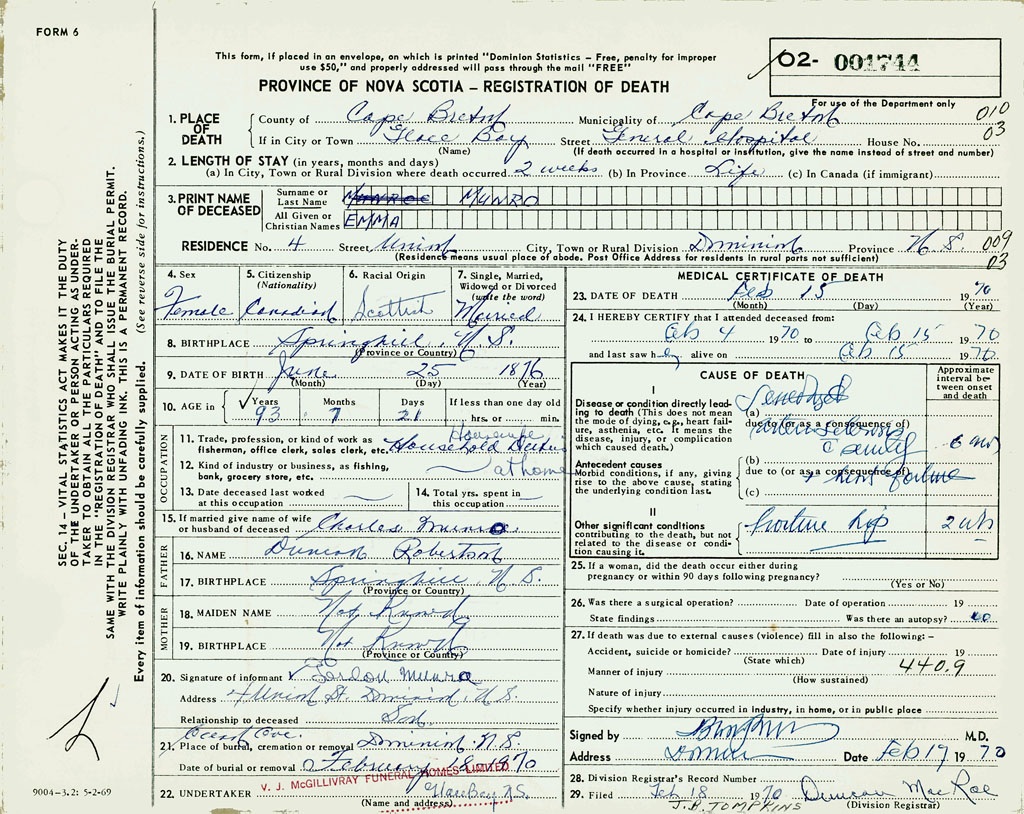 FORM 6
This form, if placed in an envelope, on which is printed "Dominion Statistics – Free, penalty for improper
use $50," and properly addressed will pass through the mail "FREE"
02- 001744
PROVINCE OF NOVA SCOTIA – REGISTRATION OF DEATH
For use of the Department only
010
03
1. PLACE OF DEATH
County of Cape Breton Municipality of Cape Breton
If in City or Town Glace Bay Street General Hospital House No.
(Name) (If death occurred in a hospital or institution, give the name instead of street and number)
2. LENGTH OF STAY (in years, months and days)
(a) In City, Town or Rural Division where death occurred 2 weeks (b) In Province Life (c) In Canada (if immigrant)
3. PRINT NAME OF DECEASED
Surname or Last Name MUNROE MUNRO
All Given or Christian Names EMMA
RESIDENCE No. 4 Street Union City, Town or Rural Division Dominion Province N.S. 009
03
(Residence means usual place of abode. Post Office Address for residents in rural parts not sufficient)
4. Sex
Female
5. Citizenship (Nationality)
Canadian
6. Racial Origin
Scottish
7. Single, Married, Widowed or Divorced (write the word)
Married
8. BIRTHPLACE Springhill, N.S.
(Province or Country)
9. DATE OF BIRTH June 25 1876
(Month) (Day) (Year)
10. AGE in Years Months Days If less than one day old
93 7 21 hrs. or min.
OCCUPATION
11. Trade, profession, or kind of work as fisherman, office clerk, sales clerk, etc. Household Duties
Housewife
12. Kind of industry or business, as fishing, bank, grocery store, etc. at home
13. Date deceased last worked at this occupation
14. Total yrs. spent in this occupation
15. If married give name of wife or husband of deceased Charles Munro
FATHER
16. NAME Duncan Robertson
17. BIRTHPLACE Springhill, N.S.
(Province or Country)
MOTHER
18. MAIDEN NAME Not Known
19. BIRTHPLACE Not Known
(Province or Country)
20. Signature of informant Gordon Munro
Address 4 Union St. Dominion, N.S.
Relationship to deceased Son
21. Place of burial, cremation or removal Dominion N.S.
Date of burial or removal February 18 1970
22. UNDERTAKER V. J. McGILLIVRAY FUNERAL HOMES LIMITED
Glace Bay N.S.
(Name and address)
MEDICAL CERTIFICATE OF DEATH
23. DATE OF DEATH Feb 15 1970
(Month) (Day) (Year)
24. I HEREBY CERTIFY that I attended deceased from:
Feb 4 1970 to Feb 15 1970
and last saw her alive on Feb 15 1970
CAUSE OF DEATH
Approximate interval between onset and death
I
Disease or condition directly leading to death (This does not mean the mode of dying, e.g., heart failure, asthenia, etc. It means the disease, injury, or complication which caused death.)
(a)
due to (or as a consequence of)
(b)
Antecedent causes
Morbid conditions, if any, giving rise to the above cause, stating the underlying condition last.
due to (or as a consequence of)
heart failure
(c)
II
Other significant conditions contributing to the death, but not related to the disease or condition causing it.
fracture hip
25. If a woman, did the death occur either during pregnancy or within 90 days following pregnancy?
(Yes or No)
26. Was there a surgical operation? Date of operation 19
State findings Was there an autopsy? no
27. If death was due to external causes (violence) fill in also the following: –
Accident, suicide or homicide? Date of injury 19
(State which)
Manner of injury 440.9
(How sustained)
Nature of injury
Specify whether injury occurred in industry, in home, or in public place
Signed by M.D.
Address Date Feb 17 1970
28. Division Registrar's Record Number
29. Filed Feb 18 1970 Duncan MacRae
J.B. TOMPKINS
(Division Registrar)
SEC. 14 – VITAL STATISTICS ACT MAKES IT THE DUTY
OF THE UNDERTAKER OR PERSON ACTING AS UNDER-
TAKER TO OBTAIN ALL THE PARTICULARS REQUIRED
IN THE "REGISTRATION OF DEATH" AND TO FILE THE
SAME WITH THE DIVISION REGISTRAR WHO SHALL ISSUE THE BURIAL PERMIT.
WRITE PLAINLY WITH UNFADING INK. THIS IS A PERMANENT RECORD.
Every item of information should be carefully supplied. (See reverse side for instructions.)
9004-3.2: 5-2-69